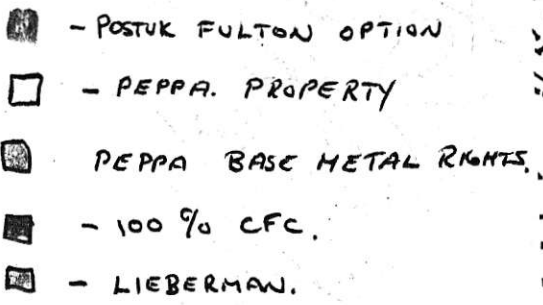 - POSTUK FULTON OPTION
- PEPPA. PROPERTY
PEPPA BASE METAL RIGHTS.
- 100 % CFC.
- LIEBERMAN.